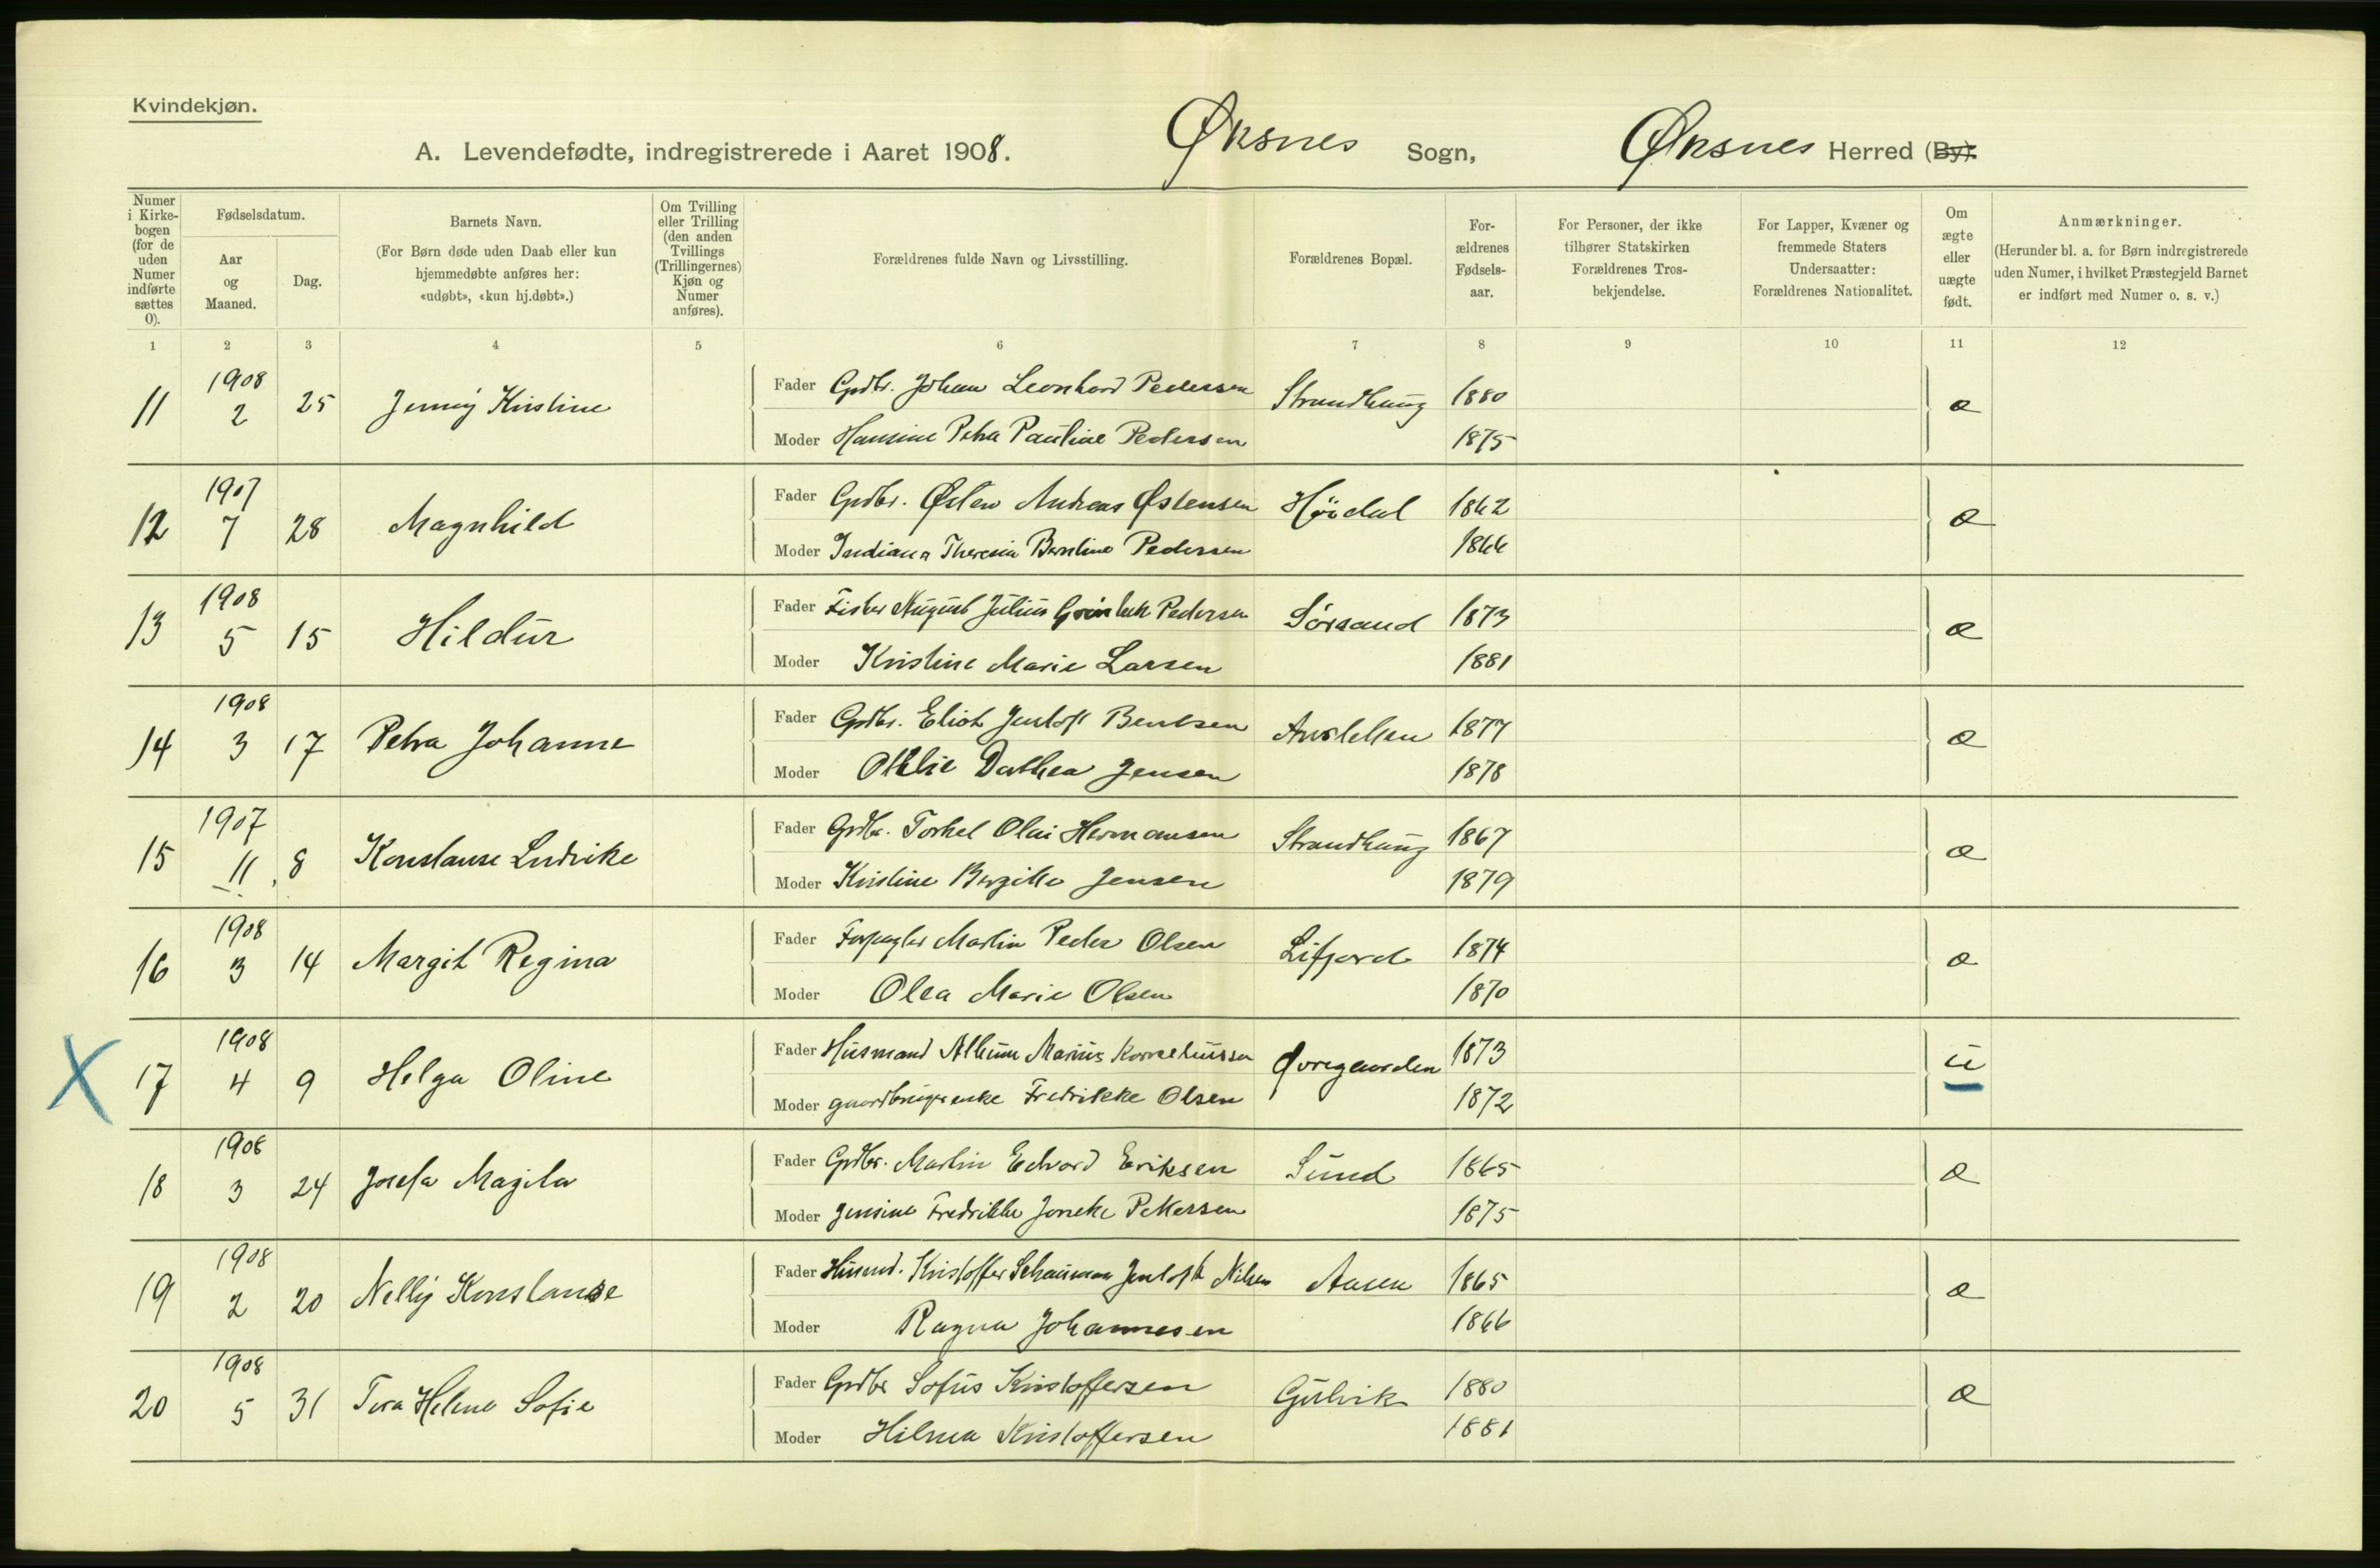 Kvindekjøn.
A. Levendefødte, indregistrerede i Aaret 1908. Øksnes Sogn, Øksnes Herred (By).
Numer i Kirke-bogen (for de uden Numer indførte sættes 0).
Fødselsdatum.
Aar og Maaned.
Dag.
Barnets Navn.
(For Børn døde uden Daab eller kun hjemmedøbte anføres her: «udøbt», «kun hj.døbt».)
Om Tvilling eller Trilling (den anden Tvillings (Trillingernes) Kjøn og Numer anføres).
Forældrenes fulde Navn og Livsstilling.
Forældrenes Bopæl.
For-ældrenes Fødsels-aar.
For Personer, der ikke tilhører Statskirken Forældrenes Tros-bekjendelse.
For Lapper, Kvæner og fremmede Staters Undersaatter: Forældrenes Nationalitet.
Om ægte eller uægte født.
Anmærkninger.
(Herunder bl. a. for Børn indregistrerede uden Numer, i hvilket Præstegjeld Barnet er indført med Numer o. s. v.)
1 2 3 4 5 6 7 8 9 10 11 12
11 1908 2 25 Jenny Kristine Fader Grdbr. Johan Leonhard Pedersen Strandhaug 1880 æ
Moder Hansine Petra Pauline Pedersen 1875
12 1907 7 28 Magnhild Fader Grdbr. Østen Andreas Østensen Høidal 1862 æ
Moder Indiana Theresia Berntine Pedersen 1866
13 1908 5 15 Hildur Fader Fisker August Julius Pedersen Sørsand 1873 æ
Moder Kristine Marie Larsen 1881
14 1908 3 17 Petra Johanne Fader Grdbr. Eliot Jentoft Bentsen 1877 æ
Moder Othlie Dorthea Jensen 1878
15 1907 11 8 Konstanse Ludvike Fader Grdbr. Torkel Olai Hermansen Strandhaug 1867 æ
Moder Kristine Bergitte Jensen 1879
16 1908 3 14 Margit Regina Fader Forpagter Martin Peder Olsen Lifjord 1874 æ
Moder Olea Marie Olsen 1870
X 17 1908 4 9 Helga Oline Fader Husmand Marius Korneliussen Øvregaarden 1873 u
Moder gaardbrugerenke Fredrikke Olsen 1872
18 1908 3 24 Josefa Magila Fader Grdbr. Martin Edvard Eriksen Sund 1865 æ
Moder Jensine Fredrikke Pettersen 1875
19 1908 2 20 Nelly Konstanse Fader Husmd. Kristoffer Jentoft Nilsen Aasen 1865 æ
Moder Ragna Johannesen 1866
20 1908 5 31 Tora Helene Sofie Fader Grdbr Sofus Kristoffersen Gulvik 1880 æ
Moder Hilma Kristoffersen 1881